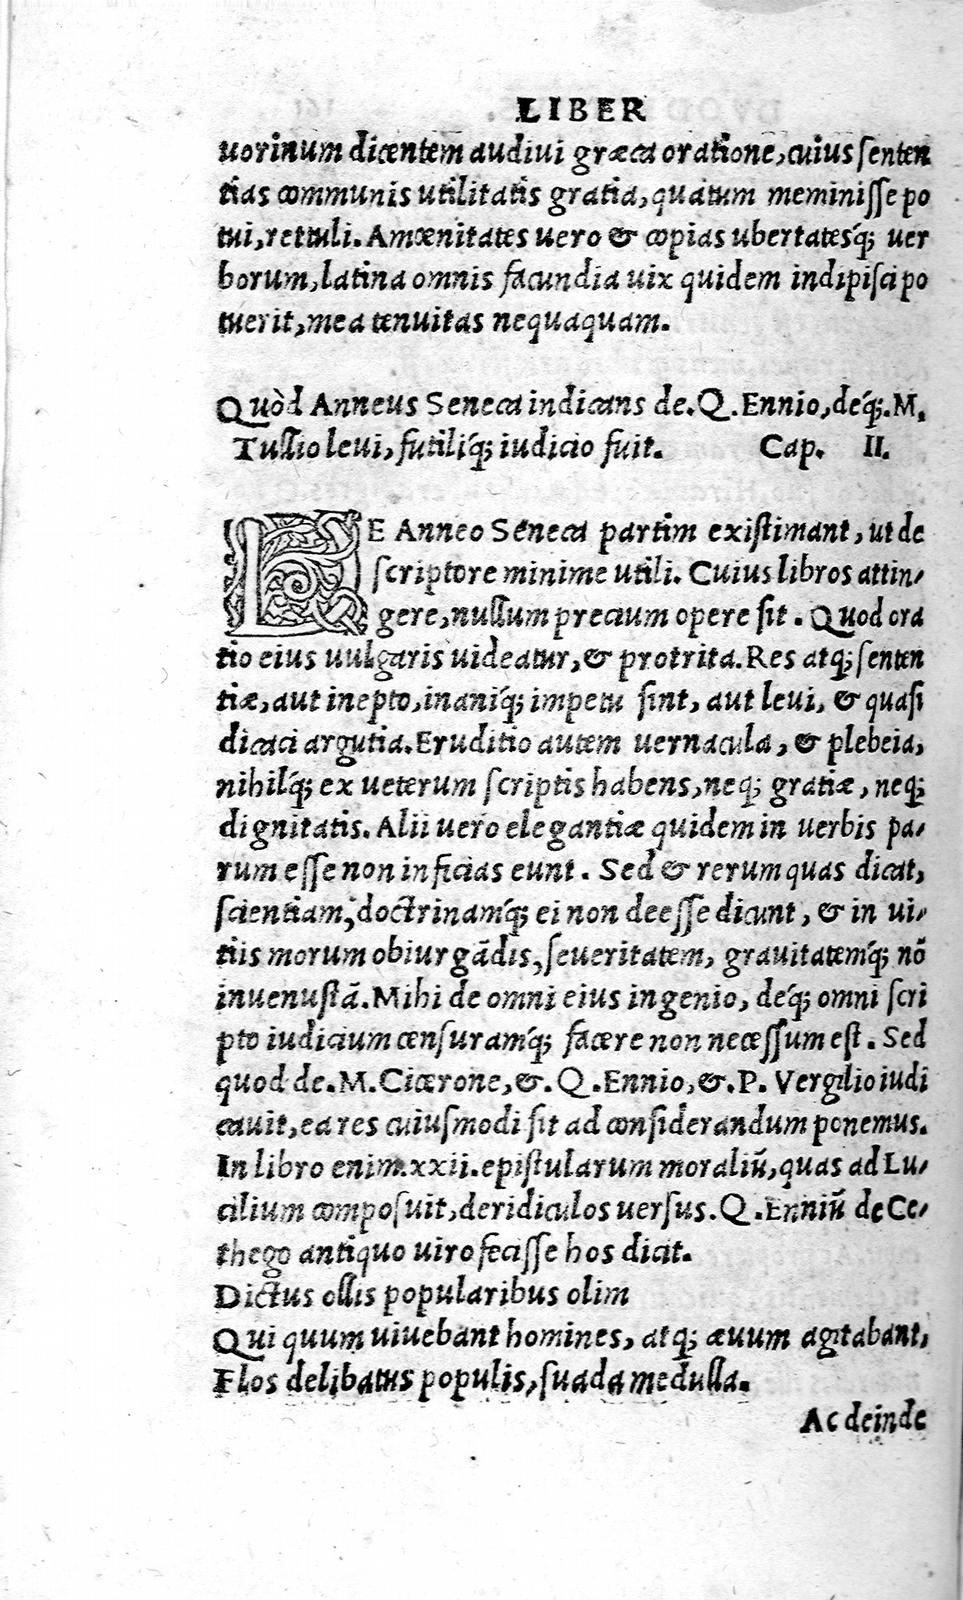 LIBER
uorinum dicentem audiui græca oratione, cuius senten
tias communis utilitatis gratia, quatum meminisse po
tui, rettuli. Amœnitates uero & copias ubertatesq́; uer
borum, latina omnis facundia uix quidem indipisci po
tuerit, mea tenuitas nequaquam.
Quòd Anneus Seneca indicans de. Q. Ennio, deq́;. M.
Tullio leui, futiliq́; iudicio fuit. Cap. II.
DE Anneo Seneca partim existimant, ut de
scriptore minime utili. Cuius libros attin-
gere, nullum precium opere sit. Quod ora
tio eius uulgaris uideatur, & protrita. Res atq; senten
tiæ, aut inepto, inaniq́; impetu sint, aut leui, & quasi
dicaci argutia. Eruditio autem uernacula, & plebeia,
nihilq́; ex ueterum scriptis habens, neq; gratiæ, neq;
dignitatis. Alii uero elegantiæ quidem in uerbis pa-
rum esse non inficias eunt. Sed & rerum quas dicat,
scientiam, doctrinamq́; ei non deesse dicunt, & in ui-
tiis morum obiurgādis, seueritatem, grauitatemq́; nō
inuenustā. Mihi de omni eius ingenio, deq́; omni scri
pto iudicium censuramq́; facere non necessum est. Sed
quod de. M. Cicerone, &. Q. Ennio, &. P. Vergilio iudi
cauit, ea res cuiusmodi sit ad considerandum ponemus.
In libro enim. xxii. epistularum moraliū, quas ad Lu-
cilium composuit, deridiculos uersus. Q. Enniū de Ce-
thego antiquo uiro fecisse hos dicit.
Dictus ollis popularibus olim
Qui quum uiuebant homines, atq; æuum agitabant,
Flos delibatus populis, suada medulla.
Ac deinde